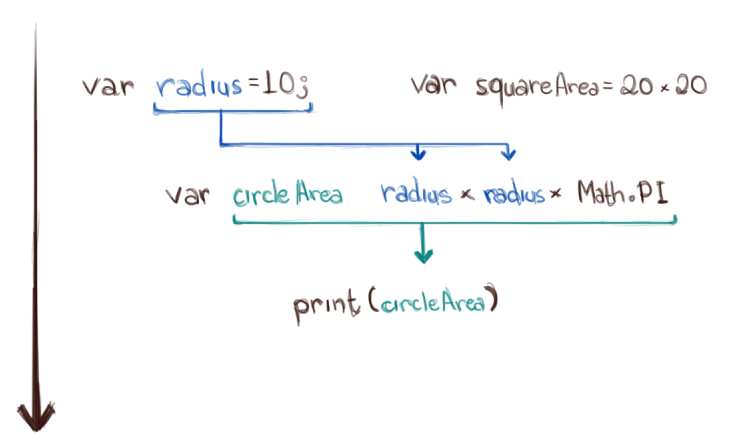 var radius=10;
var squareArea=20×20
var circleArea radius × radius × Math.PI
print(circleArea)